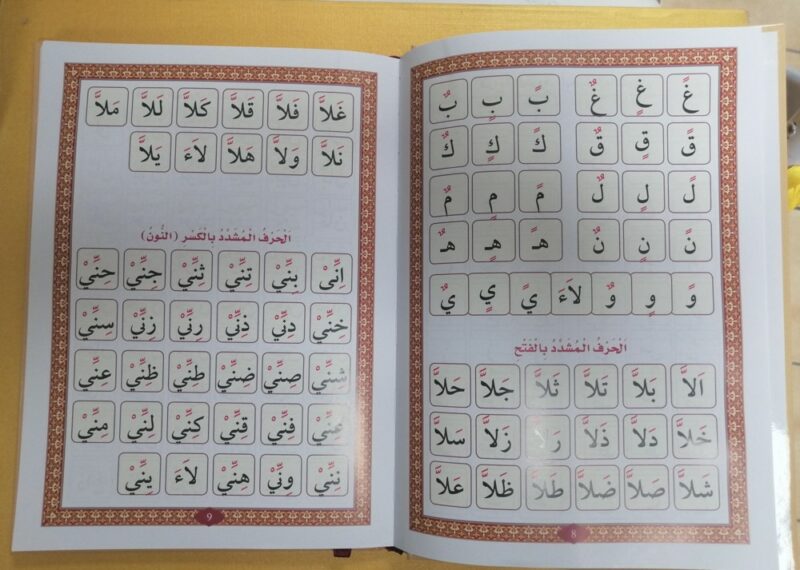 غً غٍ غٌ بً بٍ بٌ
قً قٍ قٌ كً كٍ كٌ
لً لٍ لٌ مً مٍ مٌ
نً نٍ نٌ هـً هـٍ هـٌ
وً وٍ وٌ لَاءَ يً يٍ يٌ
اَلْحَرْفُ الْمُشَدَّدُ بِالْفَتْحِ
اَلاَّ بَلاَّ تَلاَّ ثَلاَّ جَلاَّ حَلاَّ
خَلاَّ دَلاَّ ذَلاَّ رَلاَّ زَلاَّ سَلاَّ
شَلاَّ صَلاَّ ضَلاَّ طَلاَّ ظَلاَّ عَلاَّ
8
غَلاَّ فَلاَّ قَلاَّ كَلاَّ لَلاَّ مَلاَّ
نَلاَّ وَلاَّ هَلاَّ لاَءَ يَلاَّ
اَلْحَرْفُ الْمُشَدَّدُ بِالْكَسْرِ (النُّونُ)
اِنِّىْ بِنِّيْ تِنِّيْ ثِنِّيْ جِنِّيْ حِنِّيْ
خِنِّيْ دِنِّيْ ذِنِّيْ رِنِّيْ زِنِّيْ سِنِّيْ
شِنِّيْ صِنِّيْ ضِنِّيْ طِنِّيْ ظِنِّيْ عِنِّيْ
غِنِّيْ فِنِّيْ قِنِّيْ كِنِّيْ لِنِّيْ مِنِّيْ
نِنِّيْ وِنِّيْ هِنِّيْ لاَءَ يِنِّيْ
9